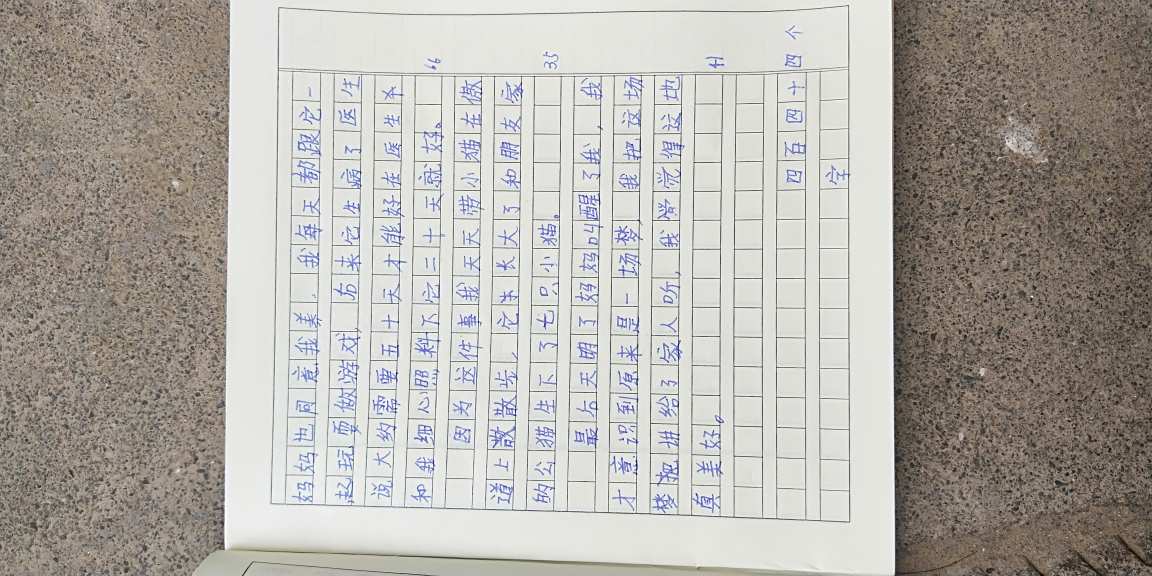 妈妈也同意我养，我每天都跟它一
起玩耍做游戏，后来它生病了医生
说大约需要五十天才能好在医生平
和我细心照料下它二十天就好。
66
因为这件事我天天带小猫在傲
道上散散步，它生长大了和朋友家
的公猫生下了七只小猫。
35
最后天明了妈妈叫醒了我，我
才意识到原来是一场梦，我把这场
梦把讲给了家人听，我觉得这地
真美好。
41
四百四十四个
字